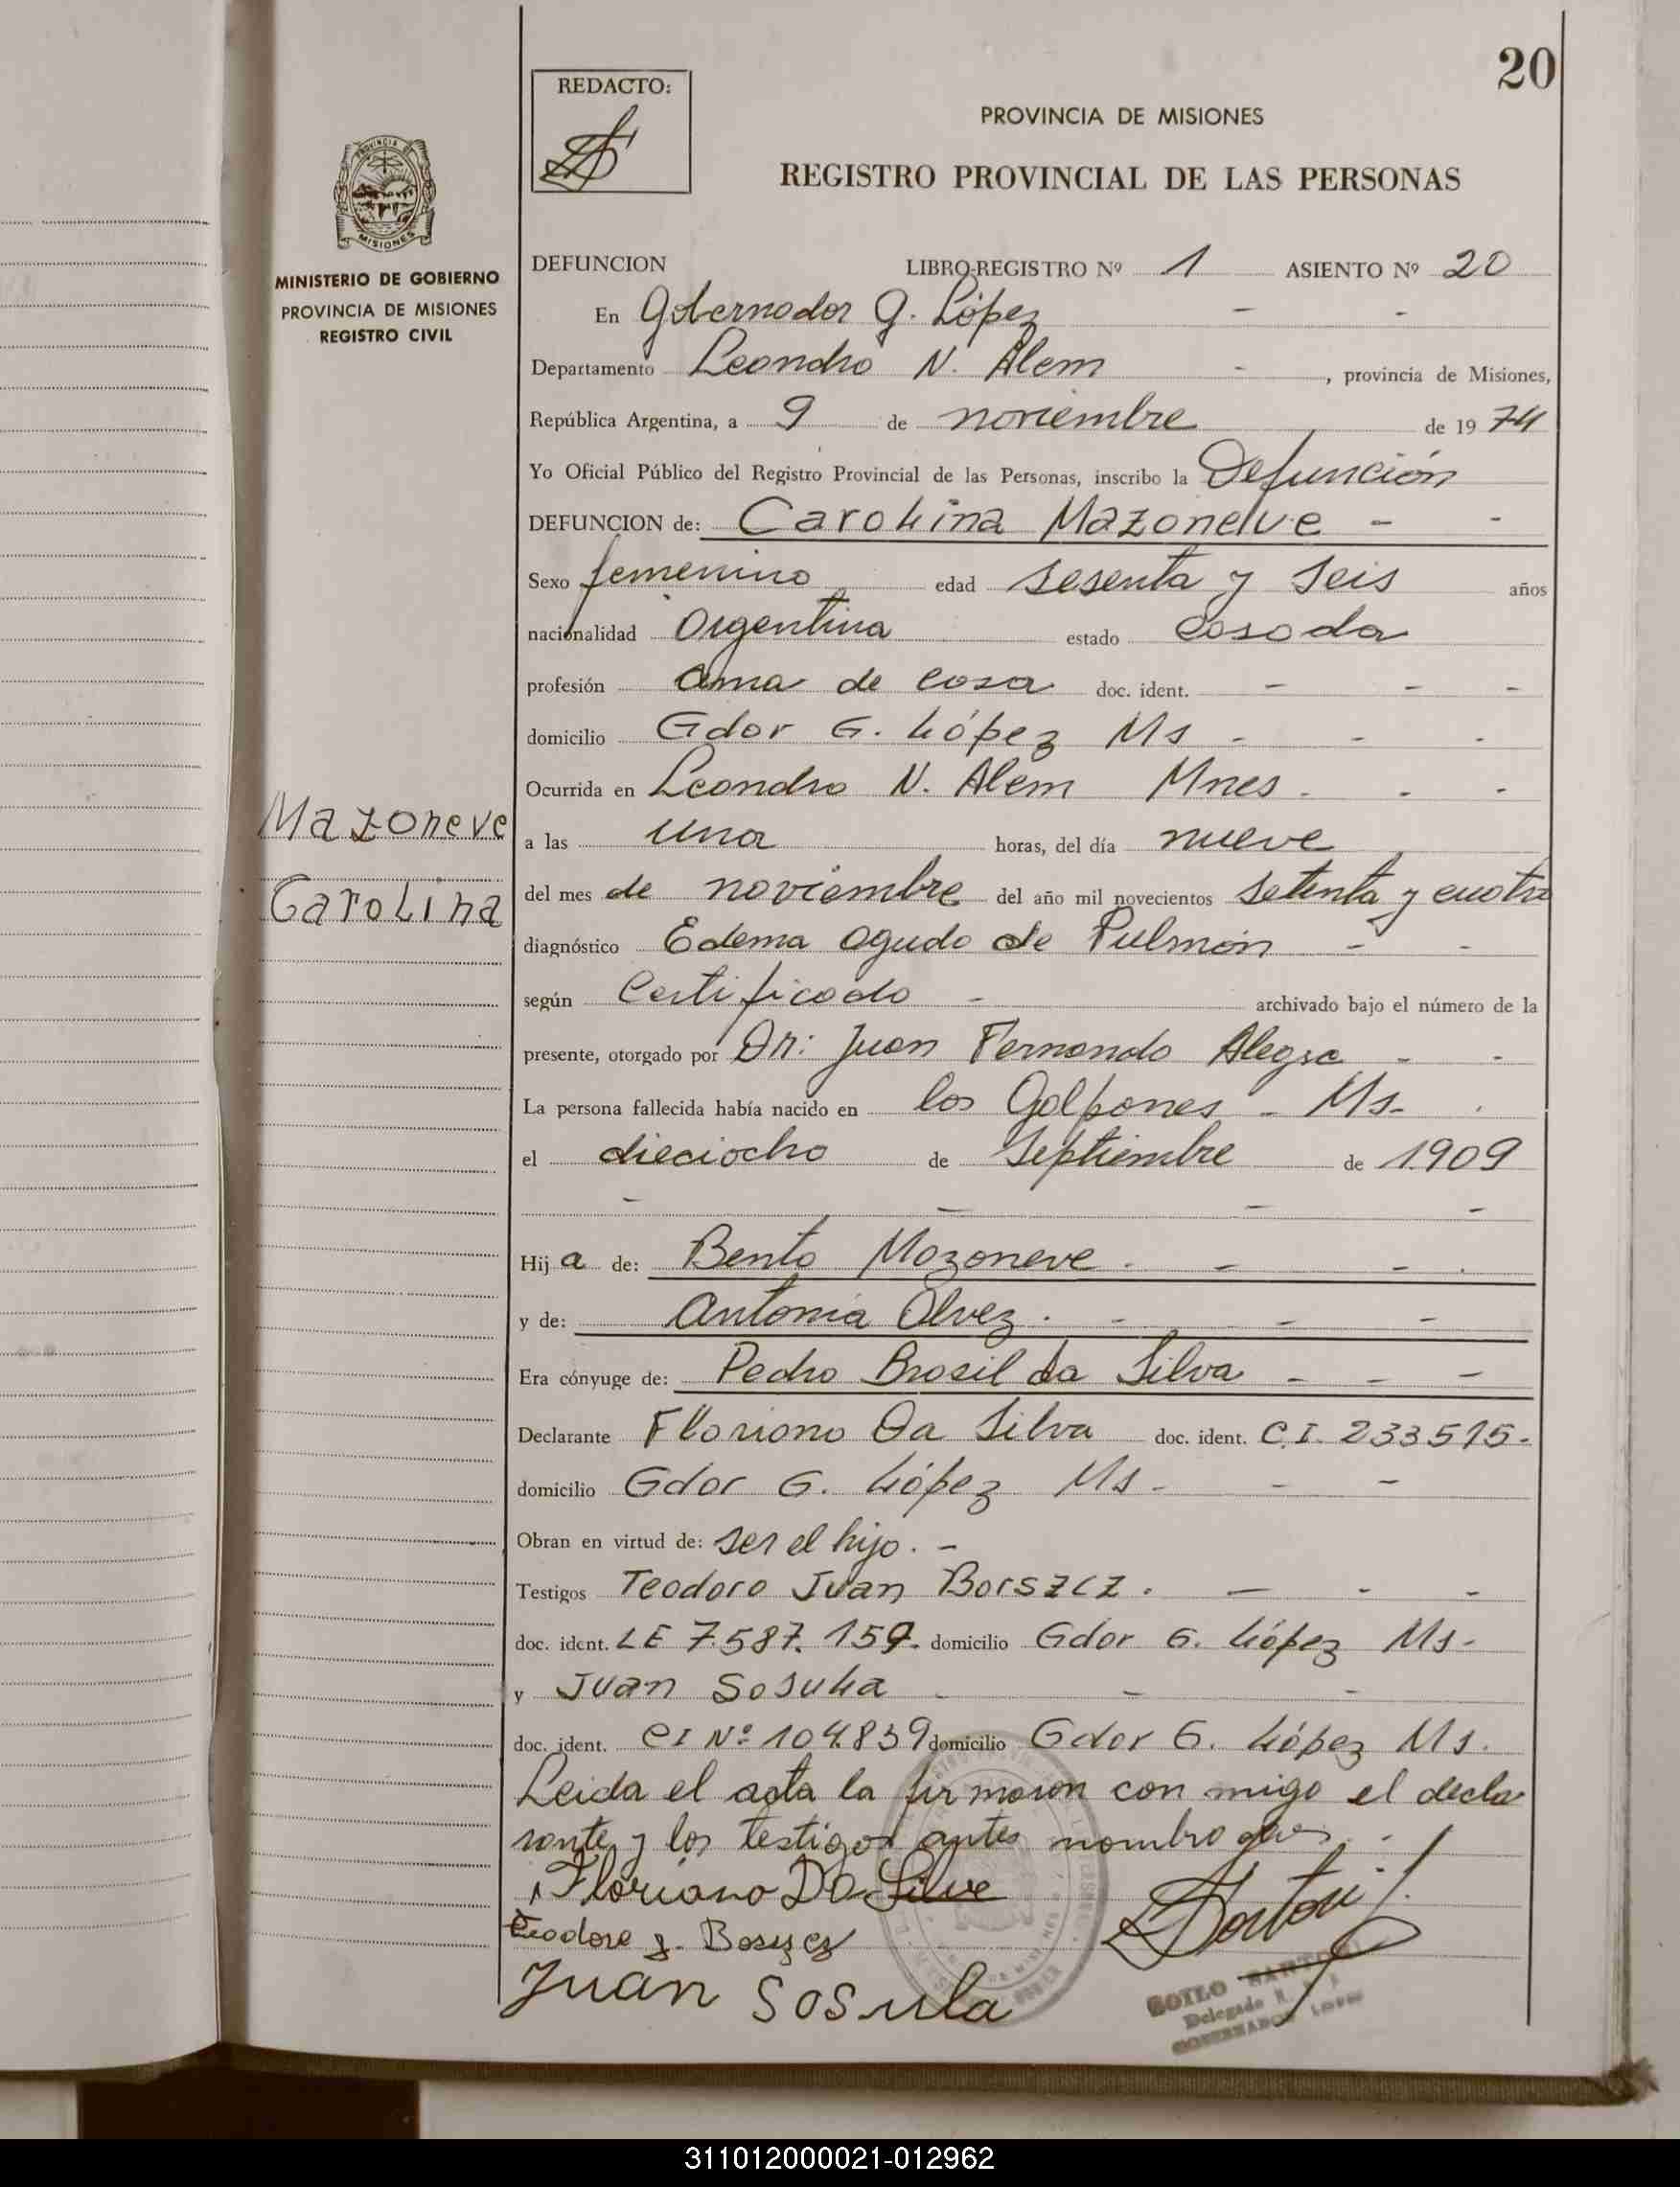 20
REDACTO:
PROVINCIA DE MISIONES
REGISTRO PROVINCIAL DE LAS PERSONAS
PROVINCIA DE
MISIONES
MINISTERIO DE GOBIERNO
PROVINCIA DE MISIONES
REGISTRO CIVIL
DEFUNCION LIBRO-REGISTRO Nº 1 ASIENTO Nº 20
En Gobernador G. López - -
Departamento Leandro N. Alem - , provincia de Misiones,
República Argentina, a 9 de noviembre de 1974
Yo Oficial Público del Registro Provincial de las Personas, inscribo la Defunción
DEFUNCION de: Carolina Mazoneve - -
Sexo femenino edad sesenta y seis años
nacionalidad Argentina estado casada
profesión ama de casa doc. ident. - - -
domicilio Gdor G. López Ms - - -
Ocurrida en Leandro N. Alem Mnes. - -
Mazoneve
a las una horas, del día nueve
Carolina
del mes de noviembre del año mil novecientos setenta y cuatro
diagnóstico Edema agudo de Pulmón - -
según Certificado - archivado bajo el número de la
presente, otorgado por Dr: Juan Fernando Alegre - -
La persona fallecida había nacido en los Galpones - Ms-
el dieciocho de Septiembre de 1909
- - - -
Hija de: Bento Mazoneve. - - .
y de: Antonia Alvez. - - -
Era cónyuge de: Pedro Brasil da Silva - - -
Declarante Floriano Da Silva doc. ident. C.I. 233515-
domicilio Gdor G. López Ms - - -
Obran en virtud de: ser el hijo. -
Testigos Teodoro Juan Borszcz. - - -
doc. ident. LE 7.587.159. domicilio Gdor G. López Ms-
y Juan Sosula - - -
doc. ident. CI Nº 104.839 domicilio Gdor G. López Ms.
Leida el acta la firmaron con migo el decla
rante y los testigos antes nombrados. -
Floriano Da Silve
Teodoro J. Borszcz
Juan Sosula
Delegado
GOBERNADOR LOPEZ
311012000021-012962